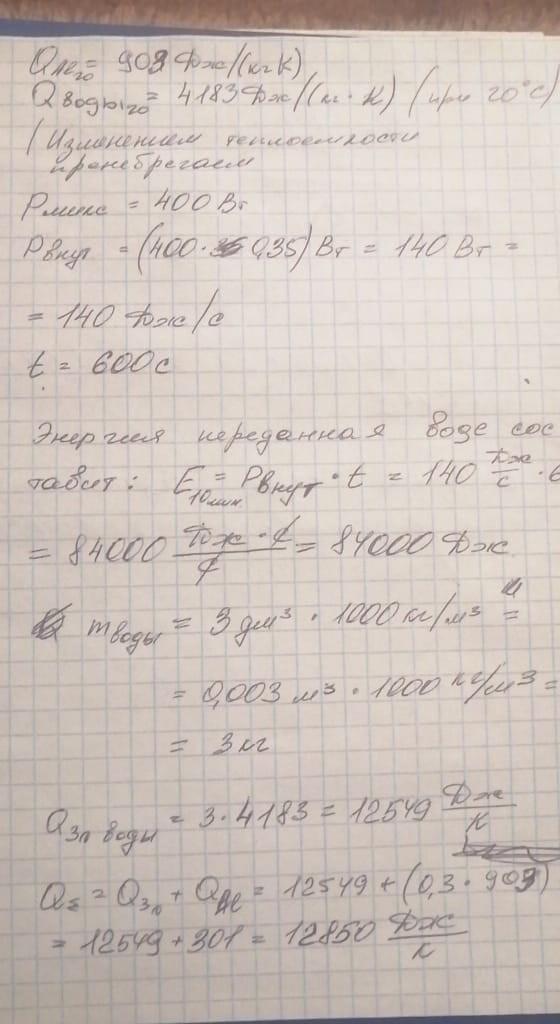 Qле₂₀ = 903 Дж/(кг К)
Qводы₂₀ = 4183 Дж/(кг·К) (при 20°С)
(Изменением теплоемкости
пренебрегаем
Pмикс = 400 Вт
Pвнут = (400 · 0,35) Вт = 140 Вт =
= 140 Дж/с
t = 600 с
Энергия переданная воде сос
тавит: E10мин = Pвнут · t = 140 Дж/с · 6
= 84000 Дж · с/с = 84000 Дж
mводы = 3 дм³ · 1000 кг/м³ =
= 0,003 м³ · 1000 кг/м³ =
= 3 кг
Q3л воды = 3 · 4183 = 12549 Дж/К
QΣ = Q3л + Qле = 12549 + (0,3 · 903)
= 12549 + 301 = 12850 Дж/К